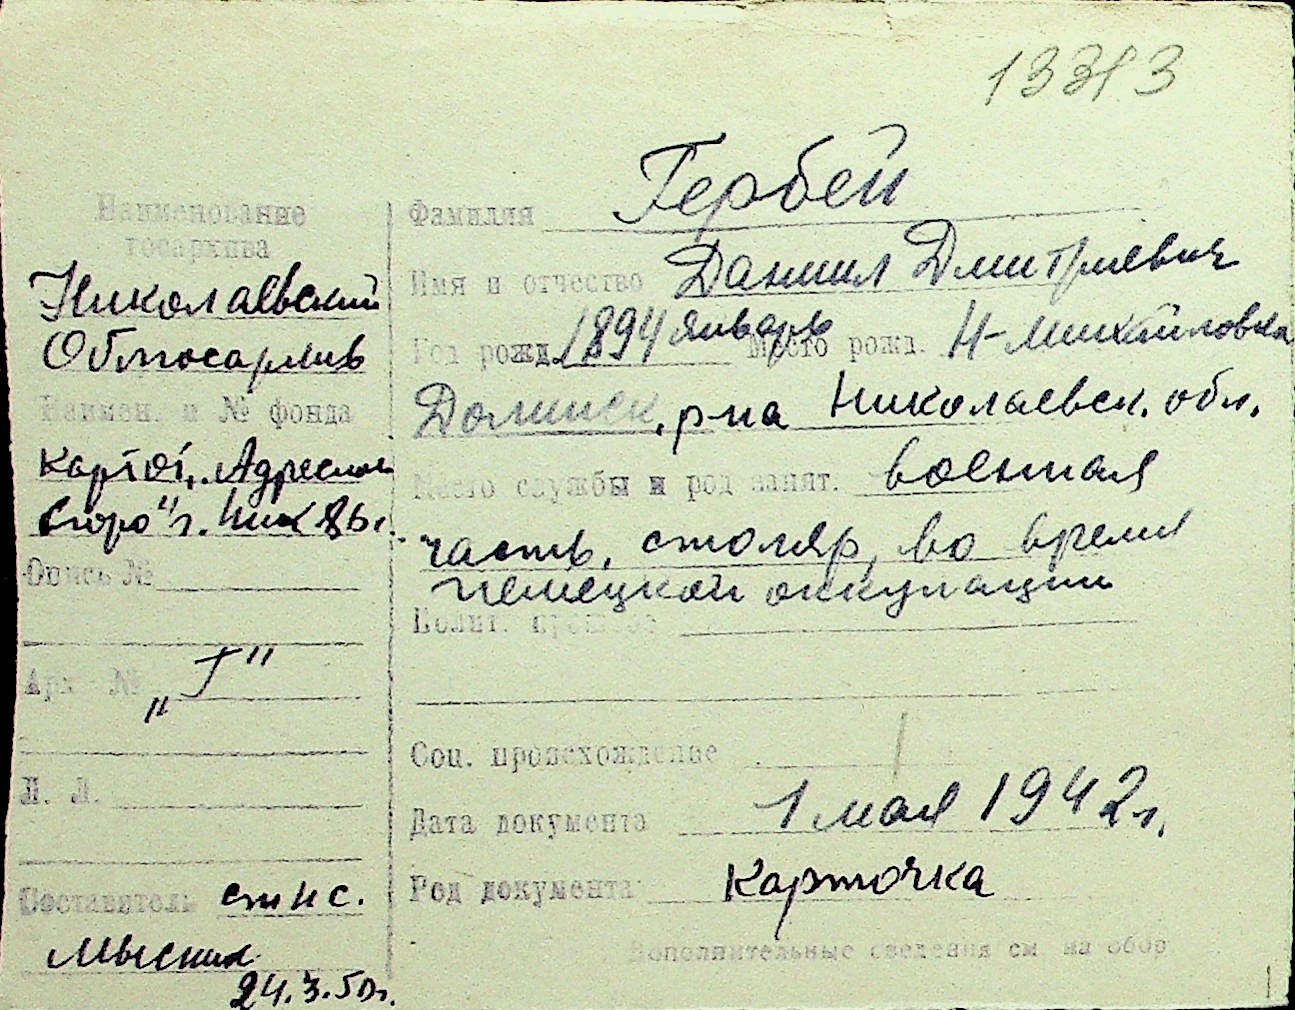 13313
Наименование
госархива
Николаевский
Облгосархив
Наимен. и № фонда
Картот. „Адресное
бюро" г. Ник
Опись №
Арх №
„Г"
Л. Л.
Составитель ст нс.
24.3.50г.
Фамилия Гербей
Имя и отчество Даниил Дмитриевич
Год рожд. 1894 январь Место рожд. Н-Михайловка
Долинск. р-на Николаевск. обл.
Место службы и род занят. военная
часть, столяр, во время
немецкой оккупации
Полит. прошлое
Соц. происхождение
Дата документа 1 мая 1942 г.
Род документа Карточка
Дополнительные сведения см на обор